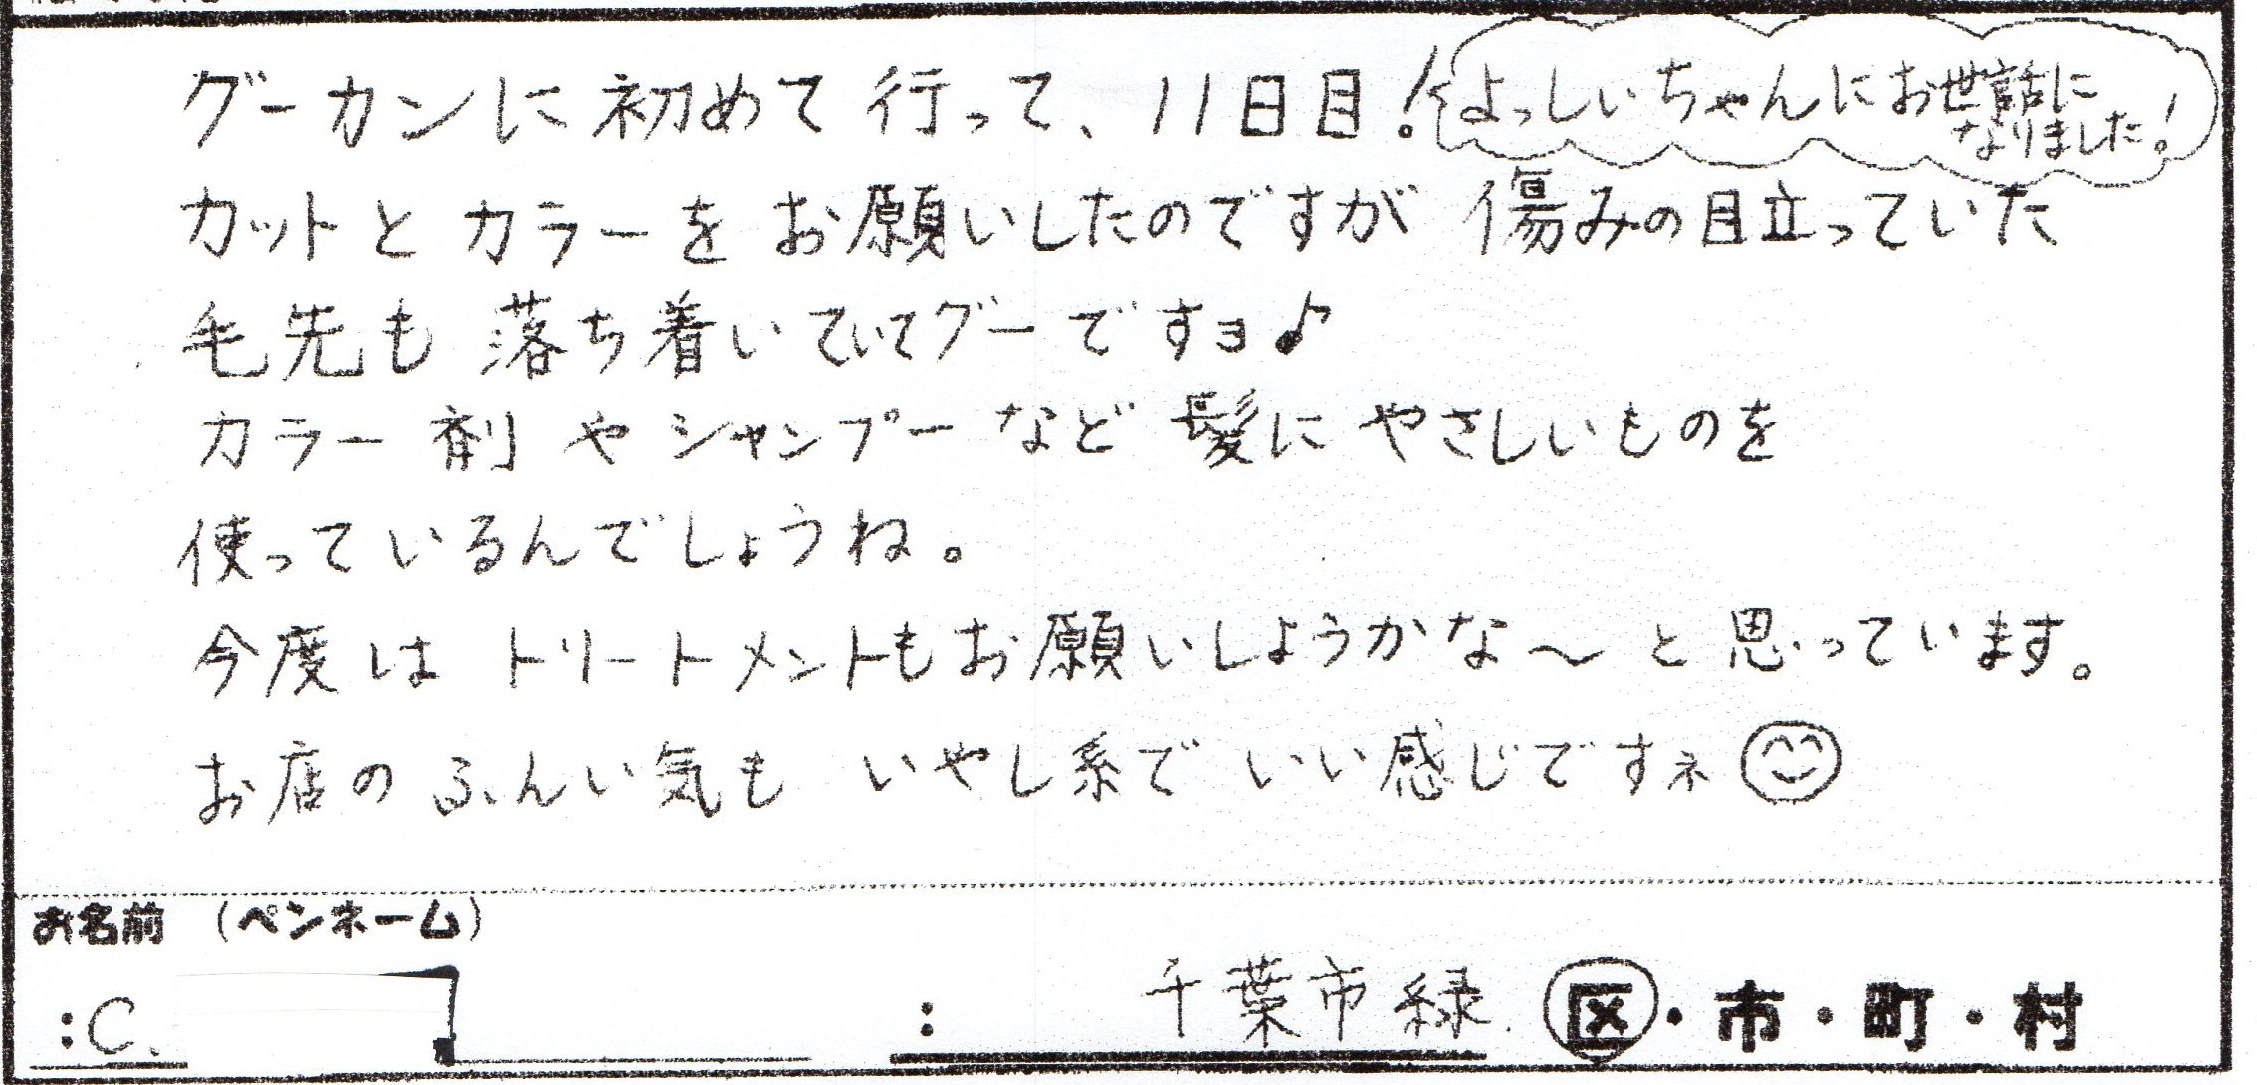 グーカンに初めて行って、11日目！
よっしぃちゃんにお世話に
なりました！
カットとカラーをお願いしたのですが傷みの目立っていた
毛先も落ち着いていてグーですョ♪
カラー剤やシャンプーなど髪にやさしいものを
使っているんでしょうね。
今度はトリートメントもお願いしようかな〜と思っています。
お店のふんい気もいやし系でいい感じですネ
お名前（ペンネーム）
：C.
：千葉市緑 区・市・町・村